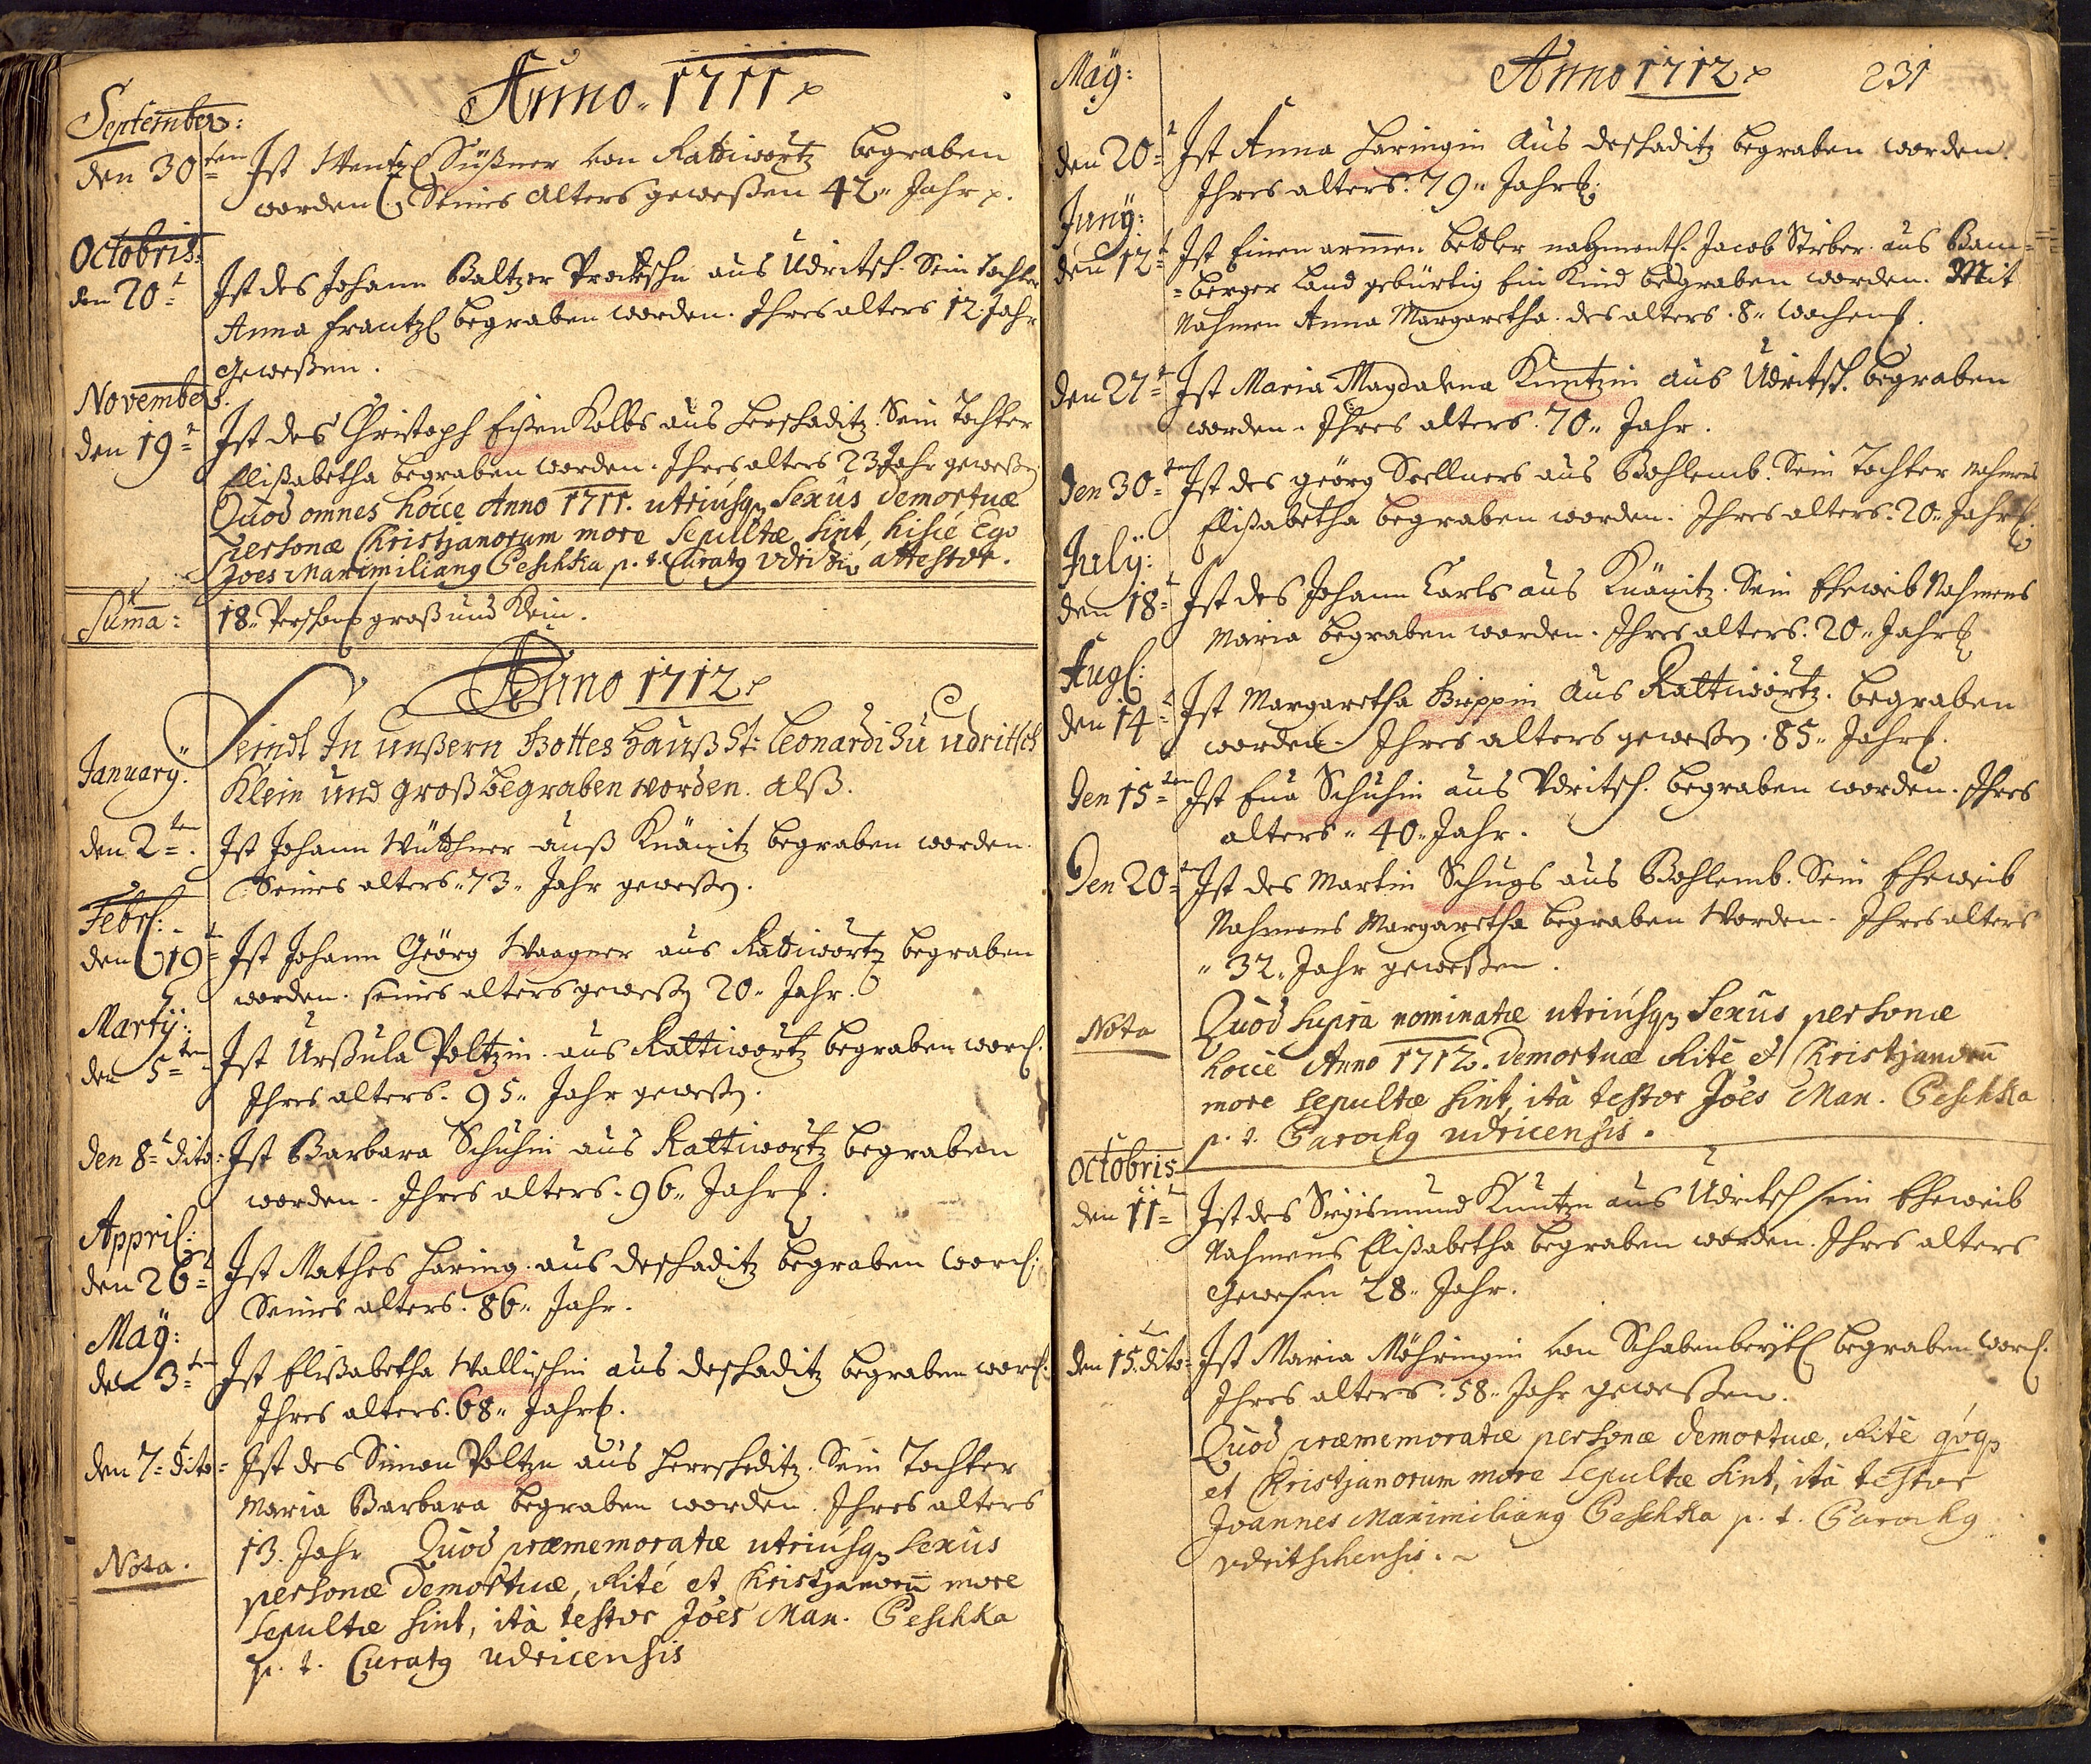 Anno. 1711
September:
den 30ten Ist Wentzl Süßner von Rattiwortz begraben
worden Seines Alters geweßen 42 Jahr.
Octobris:
den 20t Ist des Johann Baltzer Procksche aus Udritsch. Sein Tochter
Anna Frantzl begraben worden. Ihres alters 12. Jahr
geweßen.
November.
den 19t Ist des Christoph Eißen Kolbs aus Herschaditz. Sein Tochter
Elißabetha begraben worden. Ihres alters 23 Jahr geweßen
Quod omnes hocce Anno 1711. utriusq; Sexûs demortuæ
personæ Christjanorum more Sepultæ sint, hisce Ego
Joes Maximilianq Peschka p. t. Curatq attestor.
Suma: 18. Persohn groß und Klein.
Anno 1712
January: Seindt In unßern Gottes Hauß St: Leonardi Zu udritsch
Klein und groß begraben worden. alß.
den 2ten. Ist Johann Wüthner auß Knänitz begraben worden.
Seines alters 73 Jahr geweßen.
Febr:
den 19t Ist Johann Geörg Waagner aus Rattiwortz begraben
worden. seines alters geweßen 20 Jahr.
Martij:
den 5ten Ist Urßula Poltzin aus Rattiwortz begraben word.
Ihres alters. 95 Jahr geweßen.
den 8t dito: Ist Barbara Schuhin aus Rattiwortz begraben
worden. Ihres alters. 96 Jahr.
Appril:
den 26t Ist Mathes Haring aus deschaditz begraben word.
Seines alters. 86 Jahr.
Maÿ:
den 3ten Ist Elißabetha Wallischin aus deschaditz begraben word.
Ihres alters. 68 Jahr.
den 7t dito: Ist des Simon Poltzn aus Herrscheditz. Sein Tochter
Maria Barbara begraben worden. Ihres alters
13. Jahr Quod præmemoratæ utriusq; Sexus
Nota. personæ demortuæ, Rité et Christjanorū more
Sepultæ sint, ità testor Joês Max. Peschka
p. t. Curatq udricensis
Anno 1712 231
Maÿ:
den 20t Ist Anna Haringin aus deschaditz begraben worden.
Ihres alters. 79 Jahr.
Junÿ:
den 12t Ist Einen armen bettler nahmentl. Jacob Stirber aus Bam-
-berger Land gebürtig Ein Kind begraben worden. Mit
Nahmen Anna Margaretha. des alters. 8 wochen.
den 27t Ist Maria Magdalena Kuntzin aus Udritsch. begraben
worden. Ihres alters. 70 Jahr.
den 30ten Ist des Geörg Soellners aus Bohlemb. Sein Tochter Nahmens
Elißabetha begraben worden. Ihres alters. 20 Jahr.
Julÿ:
den 18t Ist des Johann Carls aus Knänitz. Sein Eheweib Nahmens
Maria begraben worden. Ihres alters. 20 Jahr.
Aug:
den 14t Ist Margaretha Bieppin aus Rattiwortz. begraben
worden. Ihres alters geweßen 85 Jahr.
Den 15ten Ist Eua Schuhin aus Vdritsch. begraben worden. Ihres
alters 40 Jahr.
Den 20ten Ist des Martin Schugs aus Bohlemb. Sein Eheweib
Nahmens Margaretha begraben Worden. Ihres alters
32 Jahr geweßen.
Quod supra nominatæ utriusq; Sexûs personæ
Nota hocce Anno 1712. Demortuæ Rité et Christjanorū
more Sepultæ sint, ità testor Joês Max. Peschka
p. t. Parochq udricensis.
Octobris
den 11t Ist des Sigismund Kuntzn aus Udritsch sein Eheweib
Nahmens Elißabetha begraben worden. Ihres alters
Gewesen 28 Jahr.
den 15t. dito: Ist Maria Möhringin von Schabenbeÿtl begraben word.
Ihres alters. 58 Jahr geweßen.
Quod præmemoratæ personæ demortuæ, Rité qvoq;
et Christjanorum more Sepultæ sint, ità testor
Joannes Maximilianq Peschka p. t. Parochq
vdritschensis.